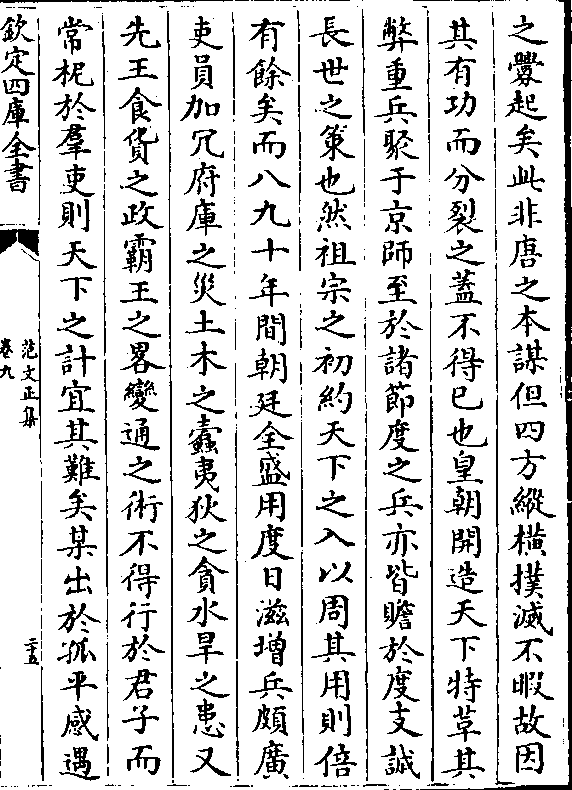 之釁起矣此非唐之本謀但四方縱橫撲滅不暇故因
其有功而分裂之蓋不得已也皇朝開造天下特革其
弊重兵聚于京師至於諸節度之兵亦皆贍於度支誠
長世之策也然祖宗之初約天下之入以周其用則倍
有餘矣而八九十年間朝廷全盛用度日滋增兵頗廣
吏員加冗府庫之災土木之蠹夷狄之貪水旱之患又
先王食貨之政霸王之畧變通之術不得行於君子而
常柅於羣吏則天下之計宜其難矣某出於孤平感遇
欽定四庫全書
范文正集
卷九
二十五